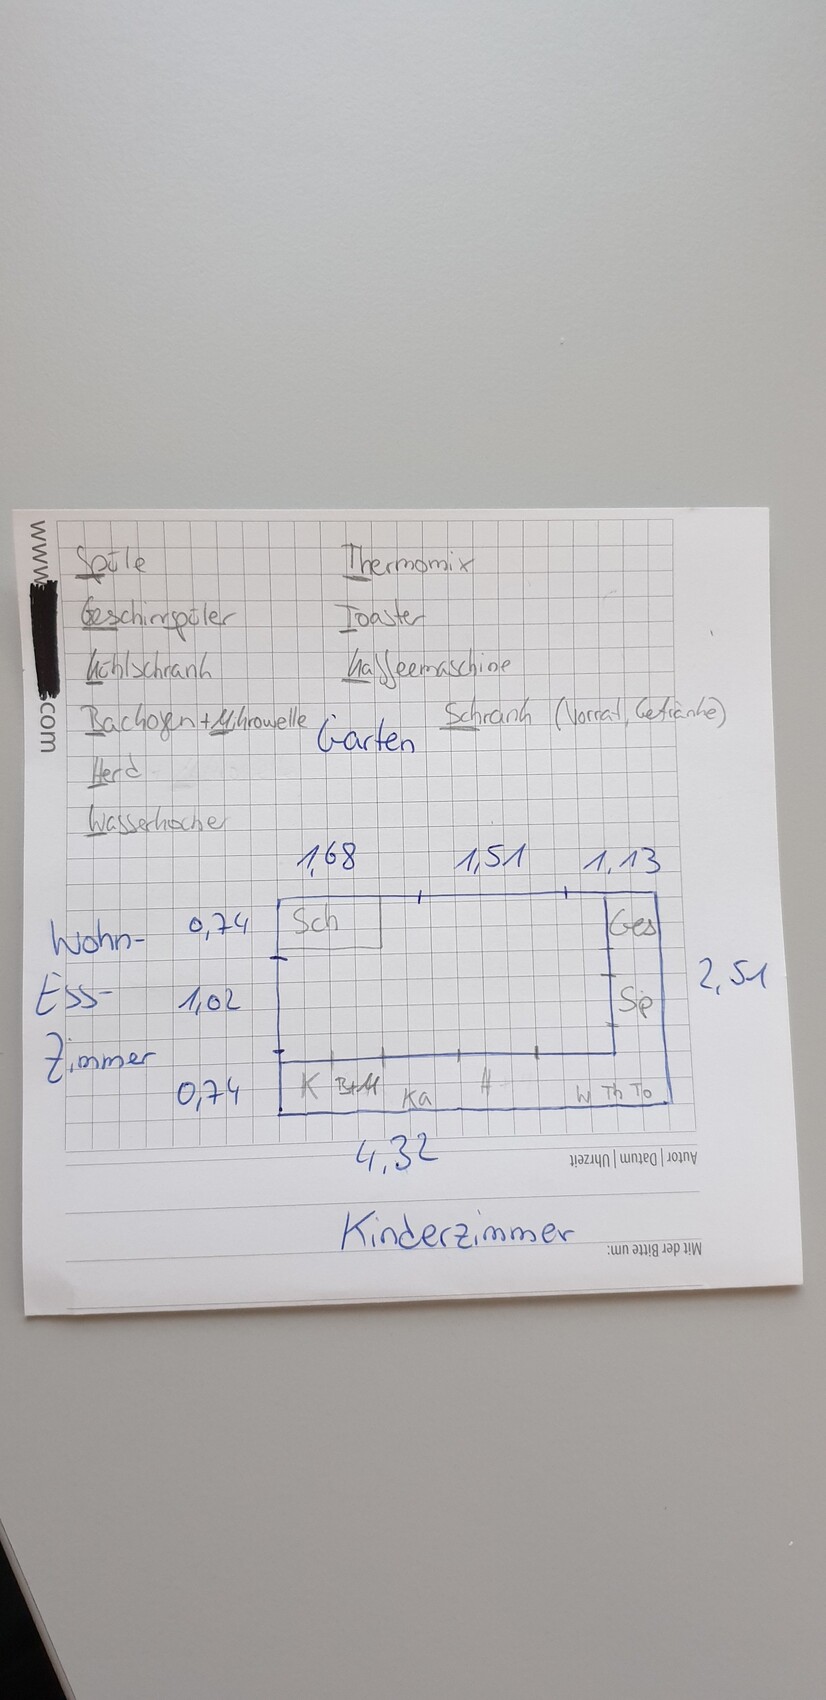 www.
s.com
Spüle
Geschirrspüler
Kühlschrank
Backofen + Mikrowelle
Herd
Wasserkocher
Thermomix
Toaster
Kaffeemaschine
Schrank (Vorrat, Getränke)
Garten
1,68 1,51 1,13
Wohn-
Ess-
Zimmer
0,74
1,02
0,74
Sch
Ges
Sp
2,51
K B+M Ka H W Th To
4,32
Kinderzimmer
Autor | Datum | Uhrzeit
Mit der Bitte um: